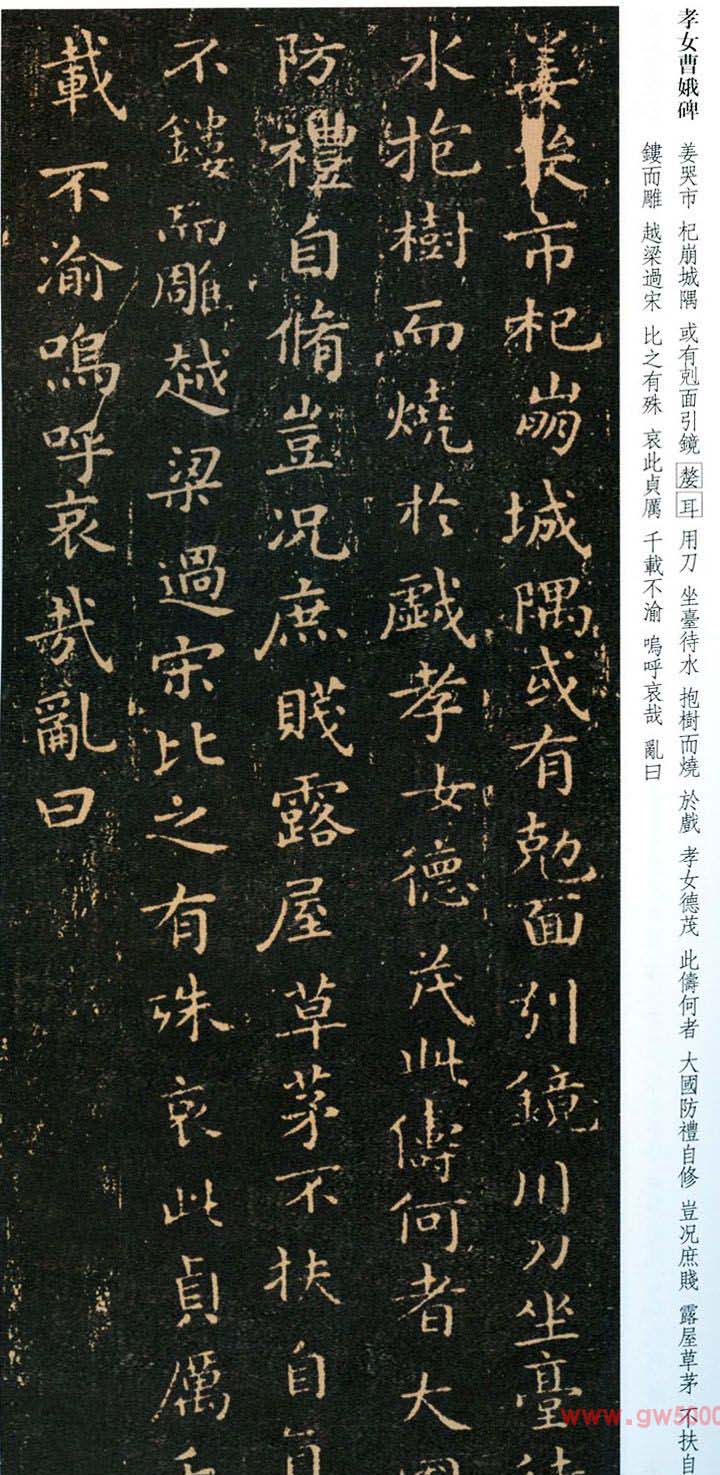 孝女曹娥碑
姜哭市 杞崩城隅 或有剋面引鏡 嫠耳 用刀 坐臺待水 抱樹而燒 於戲 孝女德茂 此儔何者 大國防禮自修 豈況庶賤 露屋草茅 不扶自
鏤而雕 越梁過宋 比之有殊 哀此貞厲 千載不渝 嗚呼哀哉 亂曰
姜哭市杞崩城隅或有剋面引鏡用刀坐臺待
水抱樹而燒於戲孝女德茂此儔何者大國
防禮自脩豈況庶賤露屋草茅不扶自直
不鏤而雕越梁過宋比之有殊哀此貞厲千
載不渝嗚呼哀哉亂曰
www.gw5000